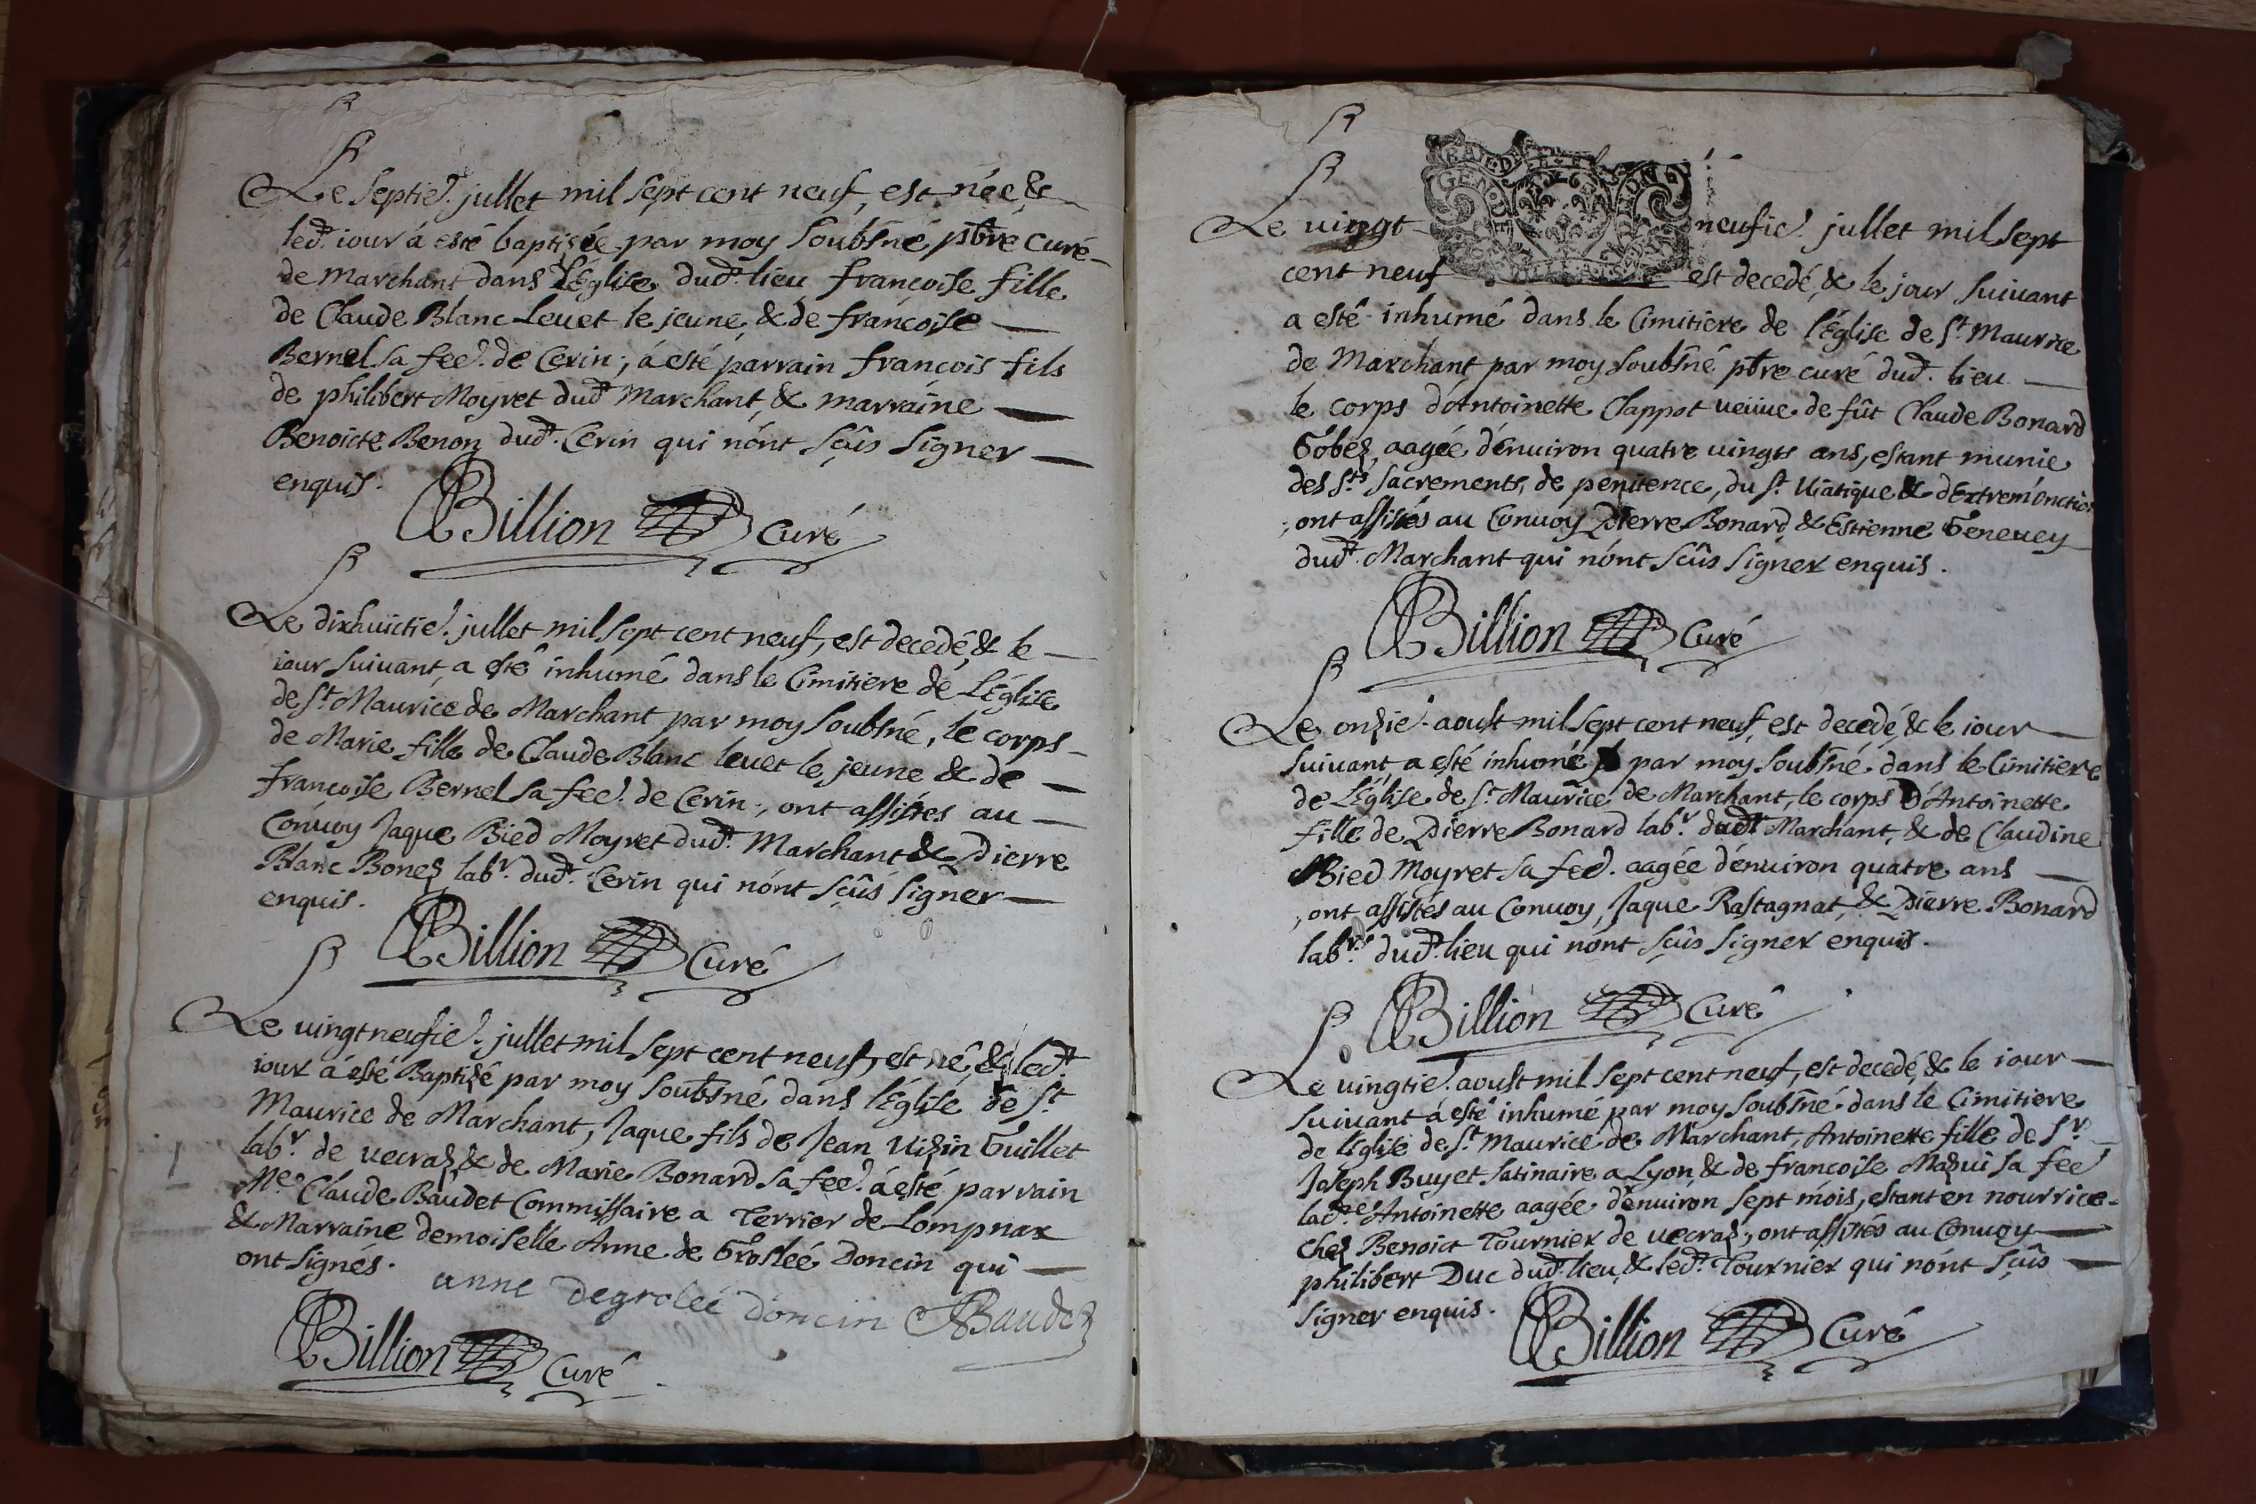 Le septie. jullet mil sept cent neuf, est née, &
led. iour á esté baptisée par moy soubsné pbre curé
de Marchant dans l'Eglise dud. lieu francoise fille
de Claude Blanc Levet le jeune, & de francoise
Bernel sa fee. de Cerin; á esté parrain francois fils
de philibert Moyret dud. Marchant, & marraine
Benoicte Benon dud. Cerin qui nónt sçûs signer
enquis.
Billion Curé
Le dixhuictie. jullet mil sept cent neuf, est decedé, & le
iour suivant, a esté inhumé dans le Cimitiere de L'Eglise
de St. Maurice de Marchant par moy soubsné, le corps
de Marie fille de Claude Blanc levet le jeune & de
francoise Bernel sa fee. de Cerin; ont assistés au
Convoy Jaque Bied Moyret dud. Marchant & Pierre
Blanc Bonez labr. dud. Cerin qui nónt sçûs signer
enquis.
Billion Curé
Le vingtneufie. jullet mil sept cent neuf, est né, & led.
iour á esté Baptizé par moy soubsné dans l'Eglise de St.
Maurice de Marchant, Jaque fils de Jean Vizin Guillet
labr. de vecraz, & de Marie Bonard sa fee. á esté parrain
Me. Claude Baudet Commissaire a Terrier de Lompnax
& Marraine demoiselle Anne de Groslée Doncin qui
ont signés.
anne degrolee doncin Baudet
Billion Curé
Le vingt neufie. jullet mil sept
cent neuf est decedé, & le jour suivant
a esté inhumé dans le Cimitiere de l'Eglise de St. Maurice
de Marchant par moy soubsné pbre curé dud. lieu
le corps d'Antoinette Clappot veuve de fût Claude Bonard
Gobez, aagée d'enuiron quatre vingts ans, estant munie
des Sts. Sacrements, de penitence, du St. Viatique & d'Extrem'onction
, ont assistés au Convoy Pierre Bonard & Estienne Genevey
dud. Marchant qui nónt sçûs signer enquis.
Billion Curé
Le onzie. aoust mil sept cent neuf, est decedé, & le iour
suivant, a esté inhumé par moy soubsné dans le Cimitiere
de L'Eglise de St. Maurice de Marchant, le corps D'Antoinette
fille de Pierre Bonard labr. dud. Marchant, & de Claudine
Bied Moyret sa fee. aagée d'enuiron quatre ans
, ont assistés au Convoy, Jaque Rastagnat, & Pierre Bonard
labrs. dud. lieu qui nónt sçûs signer enquis.
Billion Curé
Le vingtie. aoust mil sept cent neuf, est decedé, & le iour
suivant á esté inhumé par moy soubsné dans le Cimitiere
de l'Eglise de St. Maurice de Marchant, Antoinette fille de Sr.
Joseph Buyet satinaire a Lyon, & de francoise Mazui sa fee.
lade. Antoinette aagée d'enuiron sept mois, estant en nourrice
chez Benoict Tournier de vecraz, ont assistés au Convoy
philibert Duc dud. lieu, & led. Tournier qui nónt sçûs
signer enquis.
Billion Curé